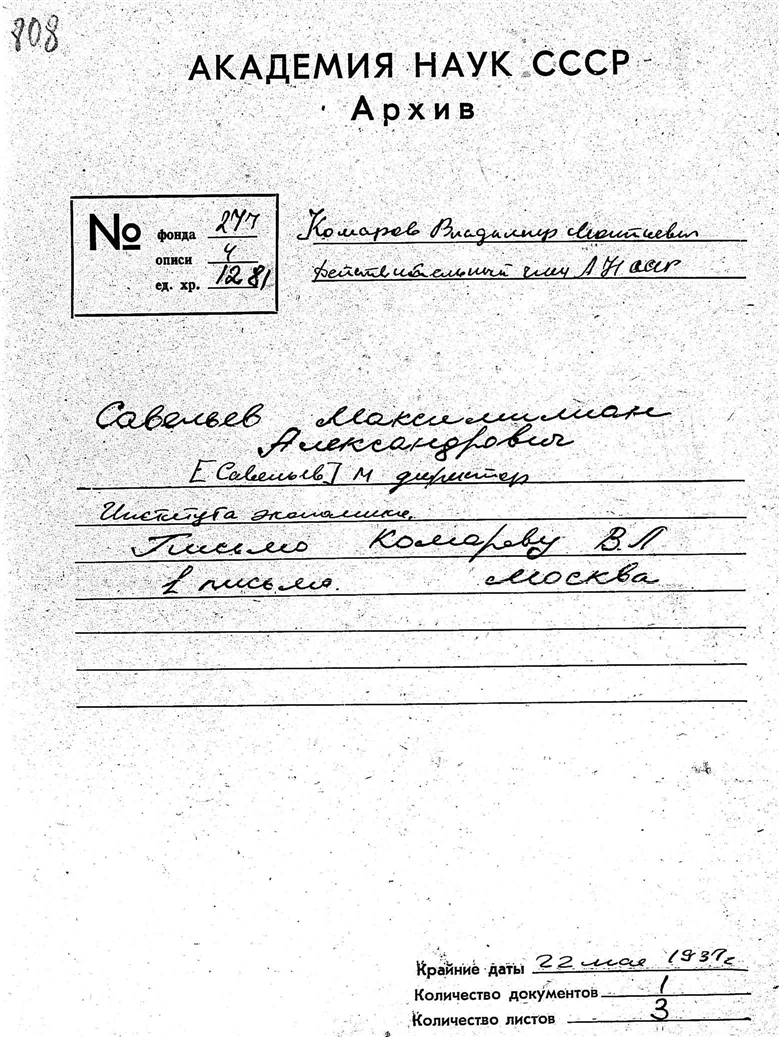 808
АКАДЕМИЯ НАУК СССР
Архив
№ фонда 277
описи 4
ед. хр. 1281
Комаров Владимир Леонтиевич
действительный член АН СССР
Савельев Максимилиан
Александрович
[Савельев] М директор
Института экономики.
Письмо Комарову В.Л
1 письмо. Москва
Крайние даты 22 мая 1937г
Количество документов 1
Количество листов 3